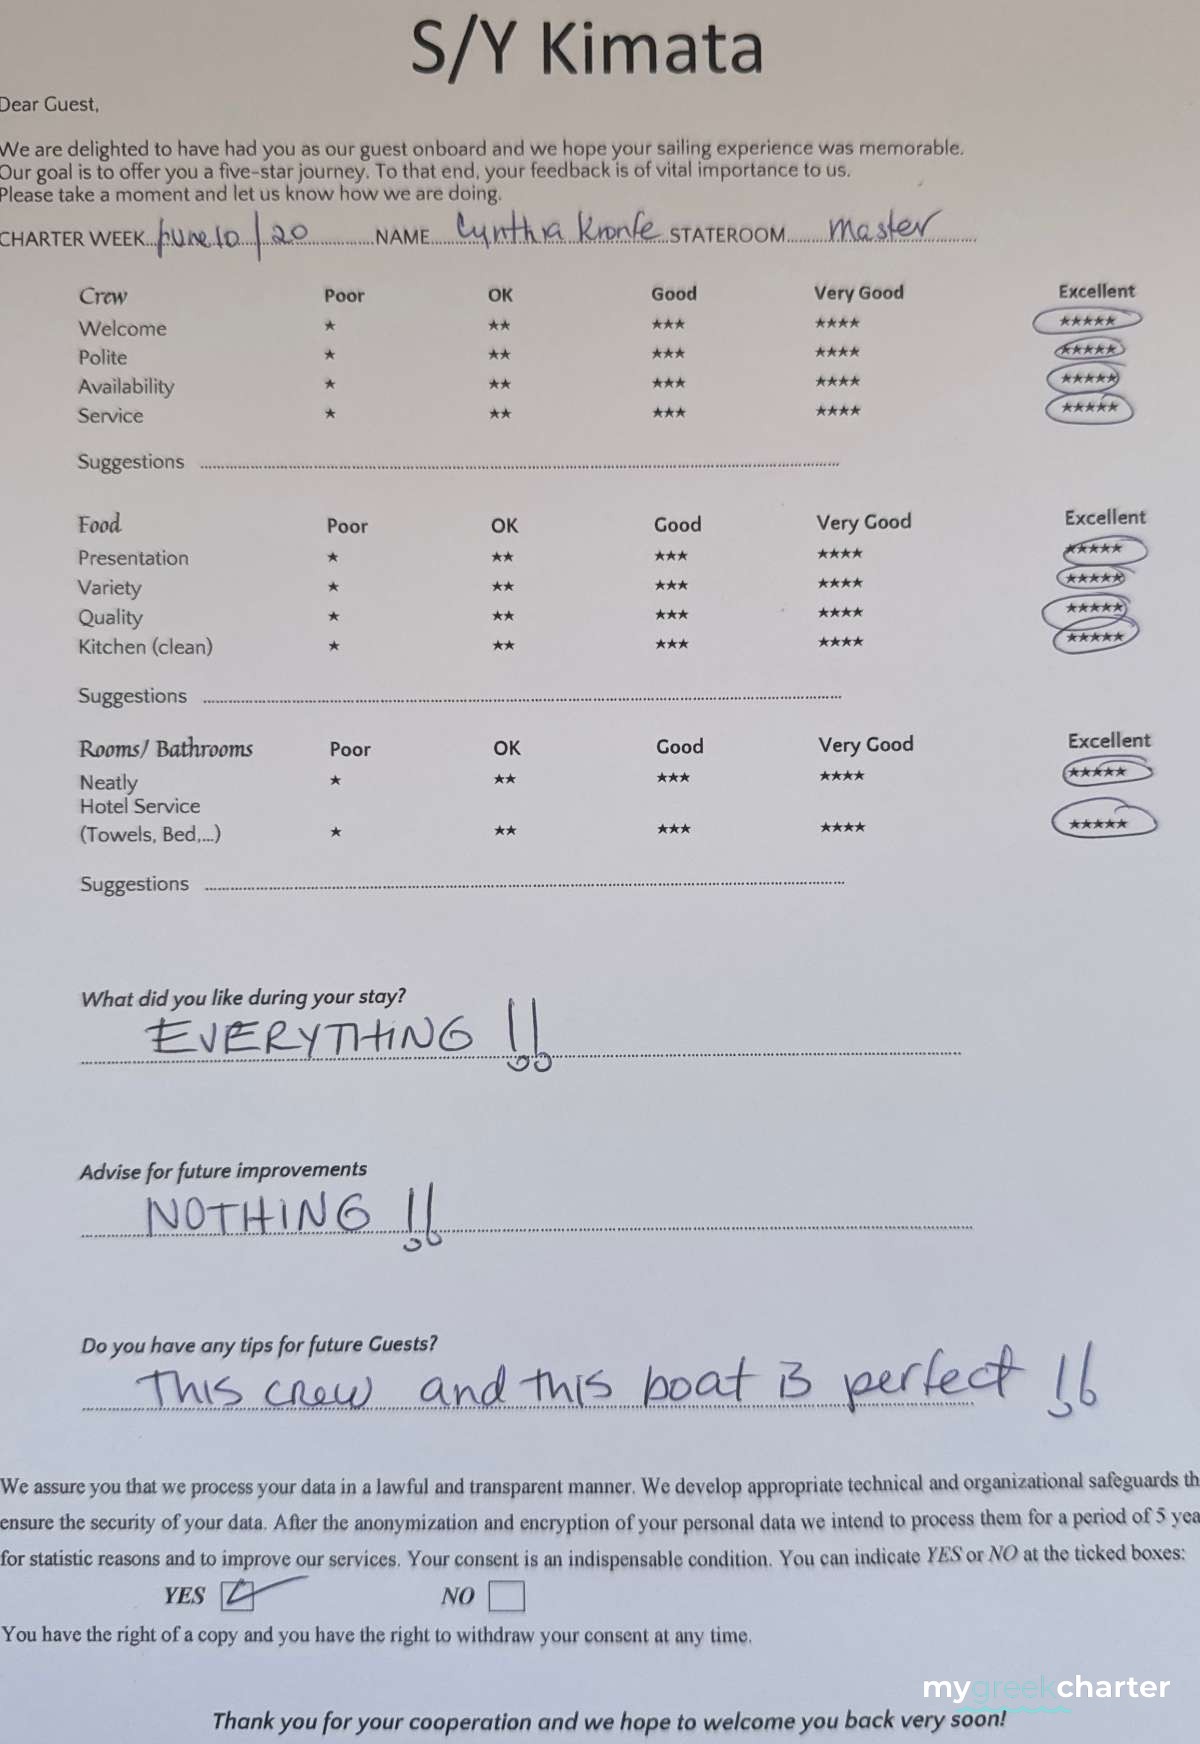 S/Y Kimata
Dear Guest,
We are delighted to have had you as our guest onboard and we hope your sailing experience was memorable.
Our goal is to offer you a five-star journey. To that end, your feedback is of vital importance to us.
Please take a moment and let us know how we are doing.
CHARTER WEEK June 10/20 NAME Cynthia Kronfe STATEROOM master
Crew Poor OK Good Very Good Excellent
Welcome ★ ★★ ★★★ ★★★★ ★★★★★
Polite ★ ★★ ★★★ ★★★★ ★★★★★
Availability ★ ★★ ★★★ ★★★★ ★★★★★
Service ★ ★★ ★★★ ★★★★ ★★★★★
Suggestions
Food Poor OK Good Very Good Excellent
Presentation ★ ★★ ★★★ ★★★★ ★★★★★
Variety ★ ★★ ★★★ ★★★★ ★★★★★
Quality ★ ★★ ★★★ ★★★★ ★★★★★
Kitchen (clean) ★ ★★ ★★★ ★★★★ ★★★★★
Suggestions
Rooms/ Bathrooms Poor OK Good Very Good Excellent
Neatly ★ ★★ ★★★ ★★★★ ★★★★★
Hotel Service
(Towels, Bed,...) ★ ★★ ★★★ ★★★★ ★★★★★
Suggestions
What did you like during your stay?
EVERYTHING !!
Advise for future improvements
NOTHING !!
Do you have any tips for future Guests?
This crew and this boat is perfect !!
We assure you that we process your data in a lawful and transparent manner. We develop appropriate technical and organizational safeguards th
ensure the security of your data. After the anonymization and encryption of your personal data we intend to process them for a period of 5 yea
for statistic reasons and to improve our services. Your consent is an indispensable condition. You can indicate YES or NO at the ticked boxes:
YES NO
You have the right of a copy and you have the right to withdraw your consent at any time.
mygreekcharter
Thank you for your cooperation and we hope to welcome you back very soon!